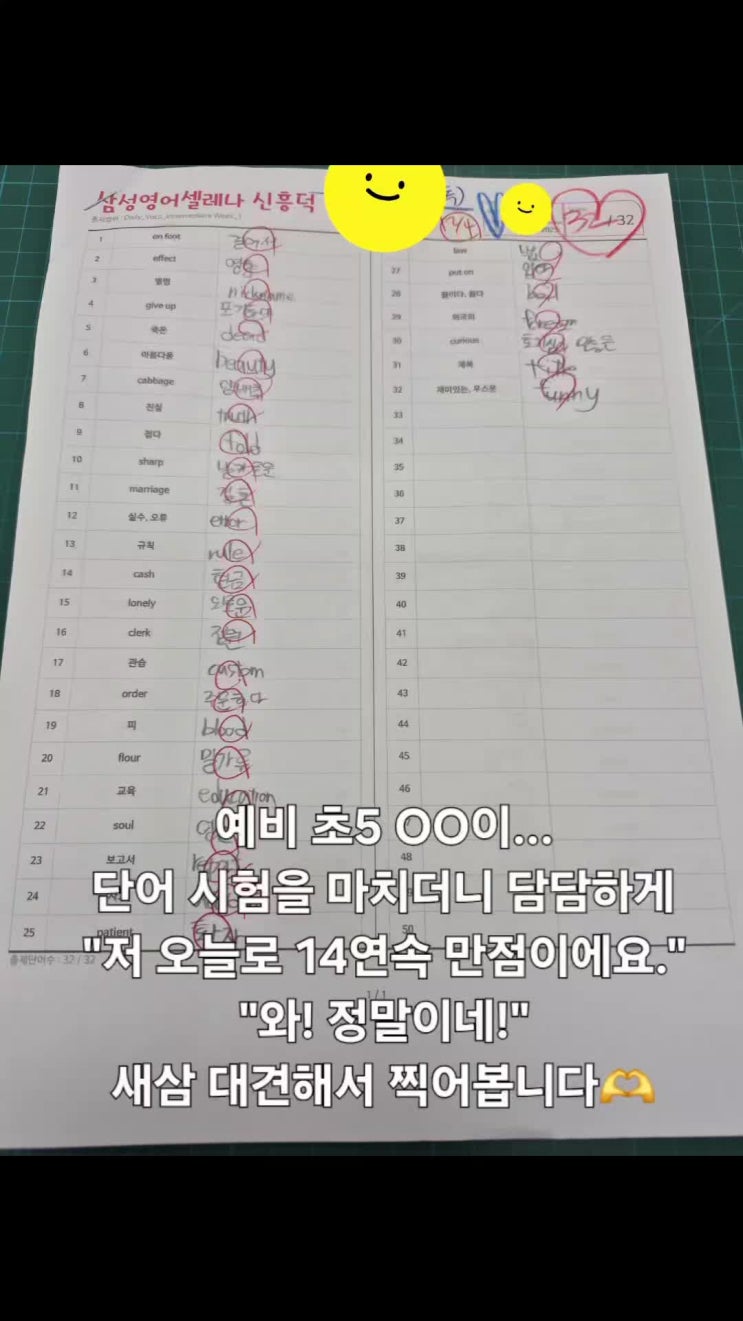 삼성영어셀레나 신흥덕
출제범위 : Daily_Voca_Intermediate Week_1
14
32 / 32
1 on foot 걸어서
2 effect 영향
3 별명 nickname
4 give up 포기하다
5 죽은 dead
6 아름다움 beauty
7 cabbage 양배추
8 진실 truth
9 접다 fold
10 sharp 날카로운
11 marriage 결혼
12 실수, 오류 error
13 규칙 rule
14 cash 현금
15 lonely 외로운
16 clerk 점원
17 관습 custom
18 order 주문하다
19 피 blood
20 flour 밀가루
21 교육 education
22 soul
23 보고서
24
25 patient 환자
law 법
27 put on 입다
28 끓이다, 끓다 boil
29 외국의 foreign
30 curious 호기심이 많은
31 제목 title
32 재미있는, 우스운 funny
33
34
35
36
37
38
39
40
41
42
43
44
45
46
48
50
출제단어수 : 32 / 32
1 / 1
예비 초5 OO이...
단어 시험을 마치더니 담담하게
"저 오늘로 14연속 만점이에요."
"와! 정말이네!"
새삼 대견해서 찍어봅니다🫶